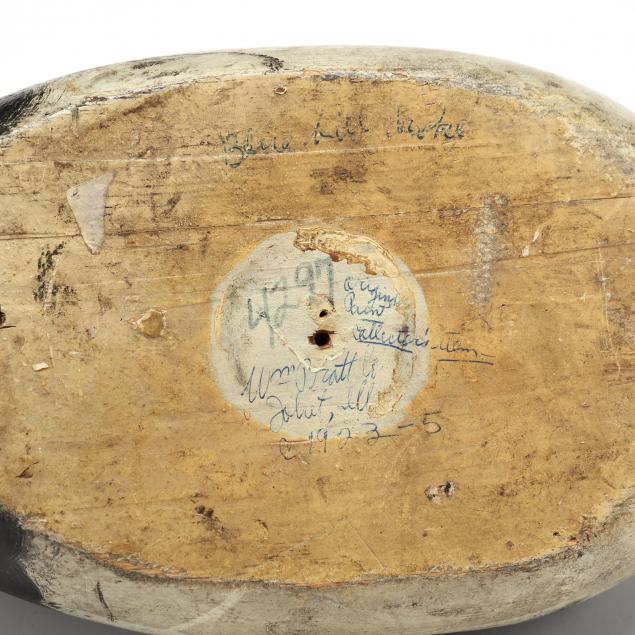 Blue bill drake
4297
Original
Paint
Collector's item
Wm Pratt Co
Joliet, Ill
C 1923-5